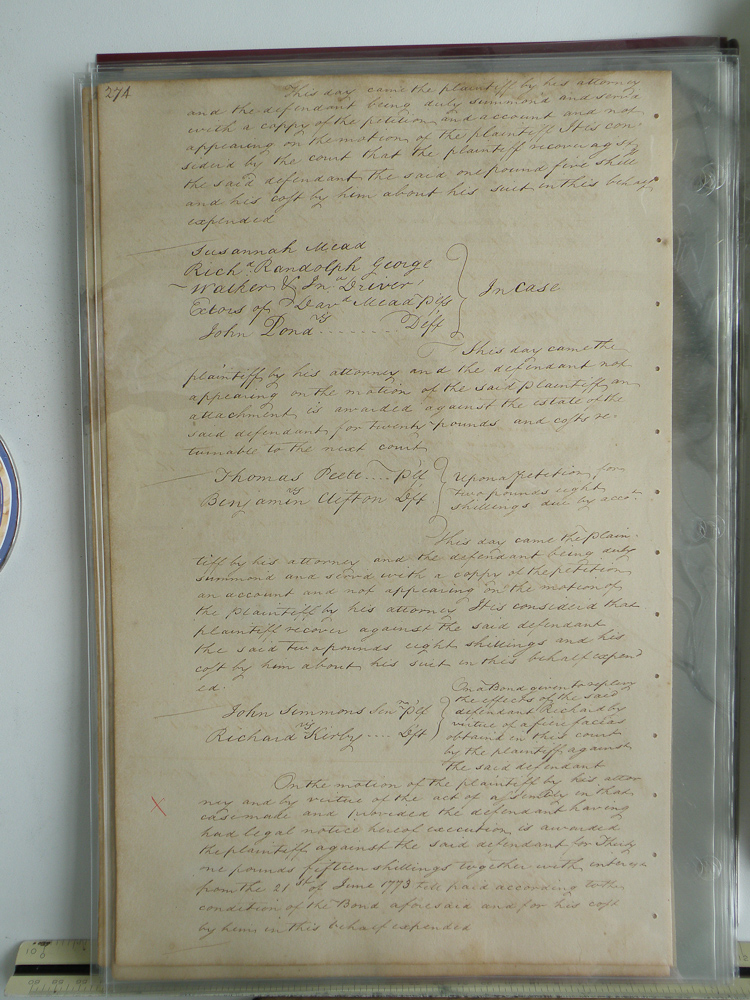 274
This day came the plaintiff by his attorney
and the defendant being duly summond and served
with a coppy of the petition and account and not
appearing on the motion of the plaintiff It is con
siderd by the court that the plaintiff recover agst
the said defendant the said one pound five shill
and his cost by him about his suit in this behalf
expended
Susannah Mead
Richd. Randolph George
Walker & Jno. Driver
Extors of Davd Mead plfs
vs
John Pond ........ Deff
In case
This day came the
plaintiff by his attorney and the defendant not
appearing on the motion of the said plaintiff an
attachment is awarded against the estate of the
said defendant for twenty pounds and costs re-
turnable to the next court
Thomas Peete .... plf
vs
Benjamin Clifton Dft
Upon a petition for
two pounds eight
shillings due by acct.
This day came the plain-
tiff by his attorney and the defendant being duly
summond and servd with a coppy of the petition
an account and not appearing on the motion of
the plaintiff by his attorney It is considerd that
plaintiff recover against the said defendant
the said two pounds eight shillings and his
cost by him about his suit in this behalf expend
ed.
John Simmons Senr plf
vs
Richard Kirby .... Dft
On a Bond given to replevy
the effects of the said
defendant Richard by
virtue of a fiere facias
obtaind in this court
by the plaintiff against
the said defendant
On the motion of the plaintiff by his attor
ney and by virtue of the act of assembly in that
case made and provided the defendant having
had legal notice hereof execution is awarded
the plaintiff against the said defendant for Thirty
one pounds fifteen shillings together with interest
from the 21st of June 1773 till paid according to the
condition of the Bond aforesaid and for his cost
by him in this behalf expended